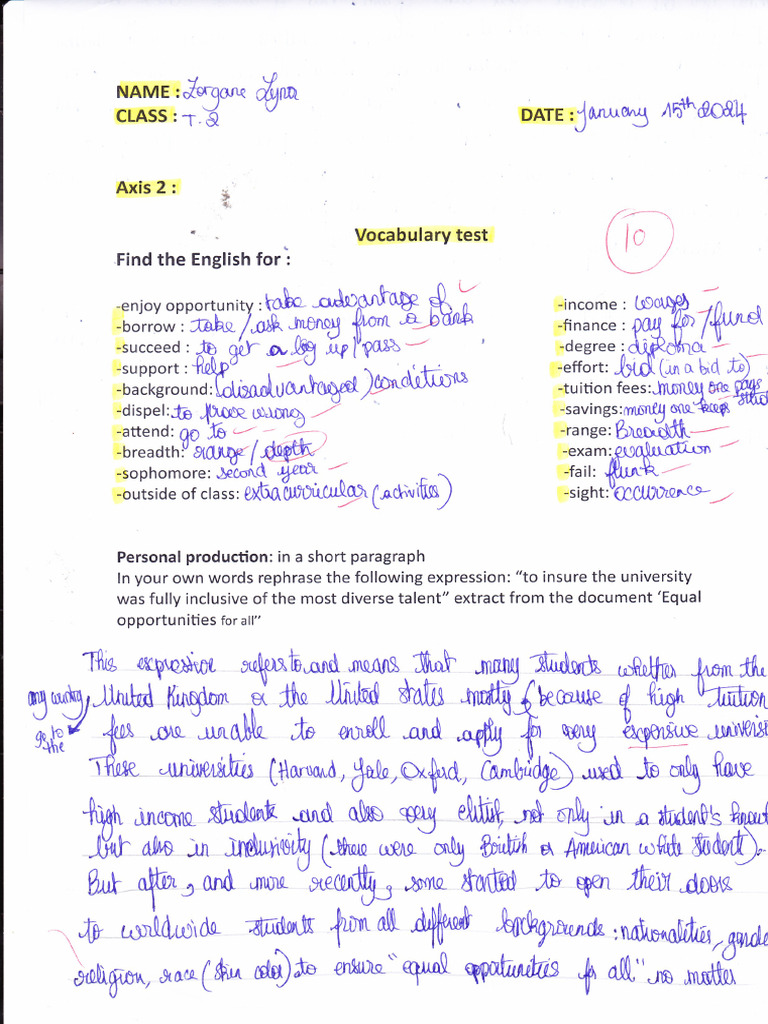 NAME : Zorgane Lyna
CLASS : T.2
DATE : January 15th 2024
Axis 2 :
Vocabulary test
10
Find the English for :
-enjoy opportunity : take advantage of
-borrow : take / ask money from a bank
-succeed : to get a leg up / pass
-support : help
-background: (disadvantaged) conditions
-dispel: to prove wrong
-attend: go to
-breadth: range / depth
-sophomore: second year
-outside of class: extracurricular (activities)
-income : wages
-finance : pay for / fund
-degree : diploma
-effort: bid (in a bid to)
-tuition fees: money one pays
-savings: money one keeps
-range: Breadth
-exam: evaluation
-fail: flunk
-sight: occurrence
Personal production: in a short paragraph
In your own words rephrase the following expression: “to insure the university
was fully inclusive of the most diverse talent” extract from the document ‘Equal
opportunities for all”
This expression refers to and means that many students whether from the
any country, United Kingdom or the United States mostly (because of high tuition
go to the fees are unable to enroll and apply for very expensive
These universities (Harvard, Yale, Oxford, Cambridge) used to only have
high income students and also very elitist, not only in a student's
but also in inclusivity (there were only British or American white students).
But after, and more recently, some started to open their doors
to worldwide students from all different backgrounds: nationalities,
religion, race (skin color) to ensure "equal opportunities for all" no matter